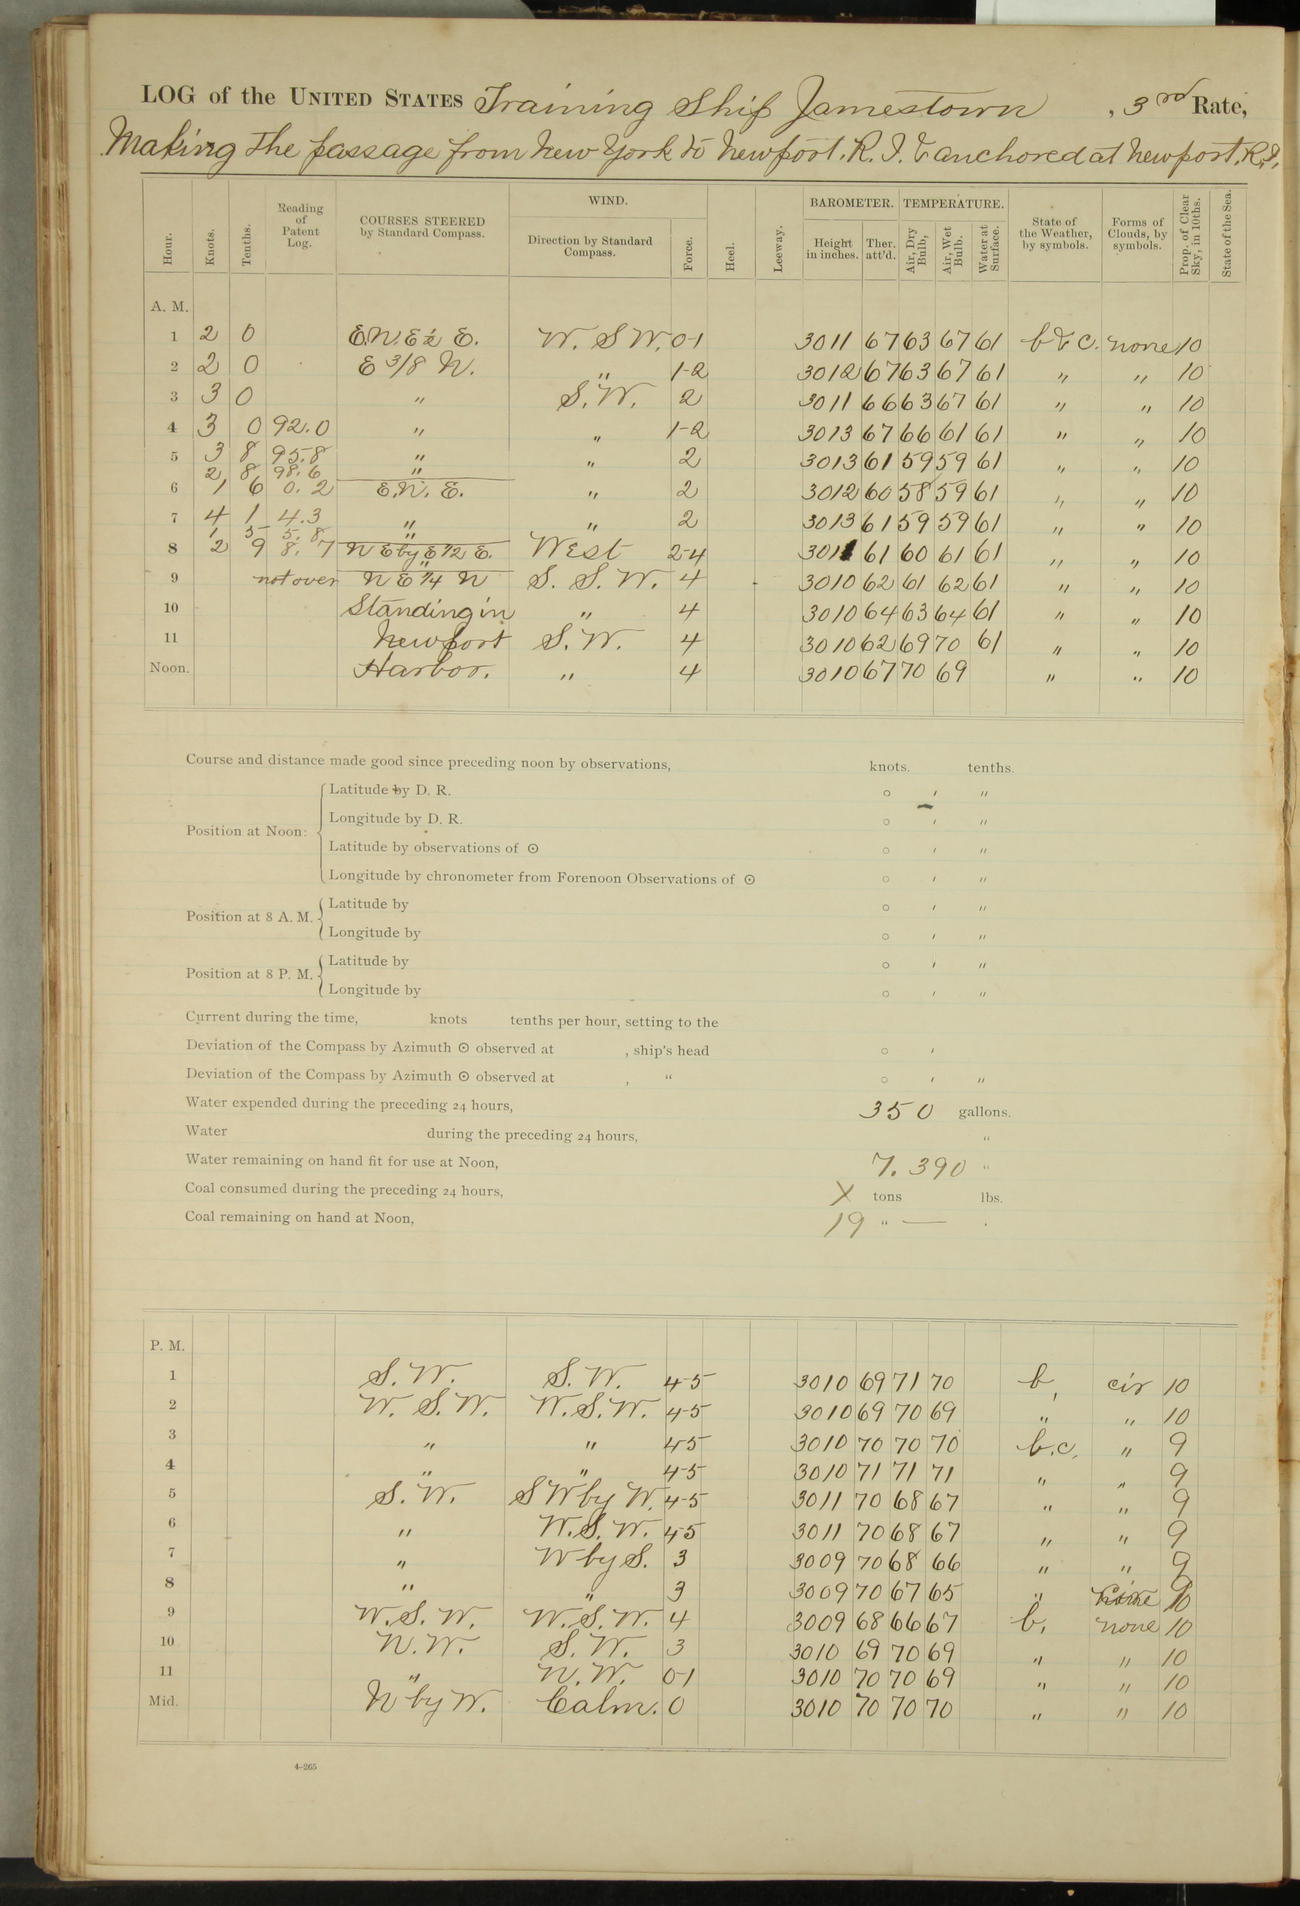 LOG of the UNITED STATES Training Ship Jamestown, 3rd Rate,
Making The passage from New York to Newport. R. I. & anchored at Newport. R. I.
Hour. Knots. Tenths. Reading of Patent Log. COURSES STEERED by Standard Compass. WIND. Direction by Standard Compass. Force. Heel. Leeway. BAROMETER. Height in inches. Ther. att'd. TEMPERATURE. Air, Dry Bulb, Air, Wet Bulb. Water at Surface. State of the Weather, by symbols. Forms of Clouds, by symbols. Prop. of Clear Sky, in 10ths. State of the Sea.
A. M.
1 2 0 E.N.E ½ E. W. S W. 0-1 3011 67 63 67 61 b & c. none 10
2 2 0 E 3/8 N. " 1-2 3012 67 63 67 61 " " 10
3 3 0 " S. W. 2 3011 66 63 67 61 " " 10
4 3 0 92.0 " " 1-2 3013 67 66 61 61 " " 10
5 3 8 95.8 " " 2 3013 61 59 59 61 " " 10
2 8 98.6 "
6 1 6 0.2 E.N. E. " 2 3012 60 58 59 61 " " 10
7 4 1 4.3 " " 2 3013 61 59 59 61 " " 10
1 5 5.8 "
8 2 9 8.7 N E by E ½ E. West 2-4 3011 61 60 61 61 " " 10
9 not over N E ¼ N S. S. W. 4 3010 62 61 62 61 " " 10
10 Standing in " 4 3010 64 63 64 61 " " 10
11 Newport S. W. 4 3010 62 69 70 61 " " 10
Noon. Harbor. " 4 3010 67 70 69 " " 10
Course and distance made good since preceding noon by observations, knots. tenths.
Position at Noon:
Latitude by D. R. ° ′ ″
Longitude by D. R. ° ′ ″
Latitude by observations of ☉ ° ′ ″
Longitude by chronometer from Forenoon Observations of ☉ ° ′ ″
Position at 8 A. M.
Latitude by ° ′ ″
Longitude by ° ′ ″
Position at 8 P. M.
Latitude by ° ′ ″
Longitude by ° ′ ″
Current during the time, knots tenths per hour, setting to the
Deviation of the Compass by Azimuth ☉ observed at , ship's head ° ′
Deviation of the Compass by Azimuth ☉ observed at , " ° ′ ″
Water expended during the preceding 24 hours, 350 gallons.
Water during the preceding 24 hours, "
Water remaining on hand fit for use at Noon, 7.390 "
Coal consumed during the preceding 24 hours, X tons lbs.
Coal remaining on hand at Noon, 19 " —
P. M.
1 S. W. S. W. 4-5 3010 69 71 70 b, cir 10
2 W. S. W. W. S. W. 4-5 3010 69 70 69 " " 10
3 " " 4-5 3010 70 70 70 b.c. " 9
4 " " 4-5 3010 71 71 71 " " 9
5 S. W. S W by W. 4-5 3011 70 68 67 " " 9
6 " W. S. W. 4-5 3011 70 68 67 " " 9
7 " W by S. 3 3009 70 68 66 " " 9
8 " " 3 3009 70 67 65 " 9
9 W. S. W. W. S. W. 4 3009 68 66 67 b. none 10
10 N. W. S. W. 3 3010 69 70 69 " " 10
11 " N. W. 0-1 3010 70 70 69 " " 10
Mid. N by W. Calm. 0 3010 70 70 70 " " 10
4-265